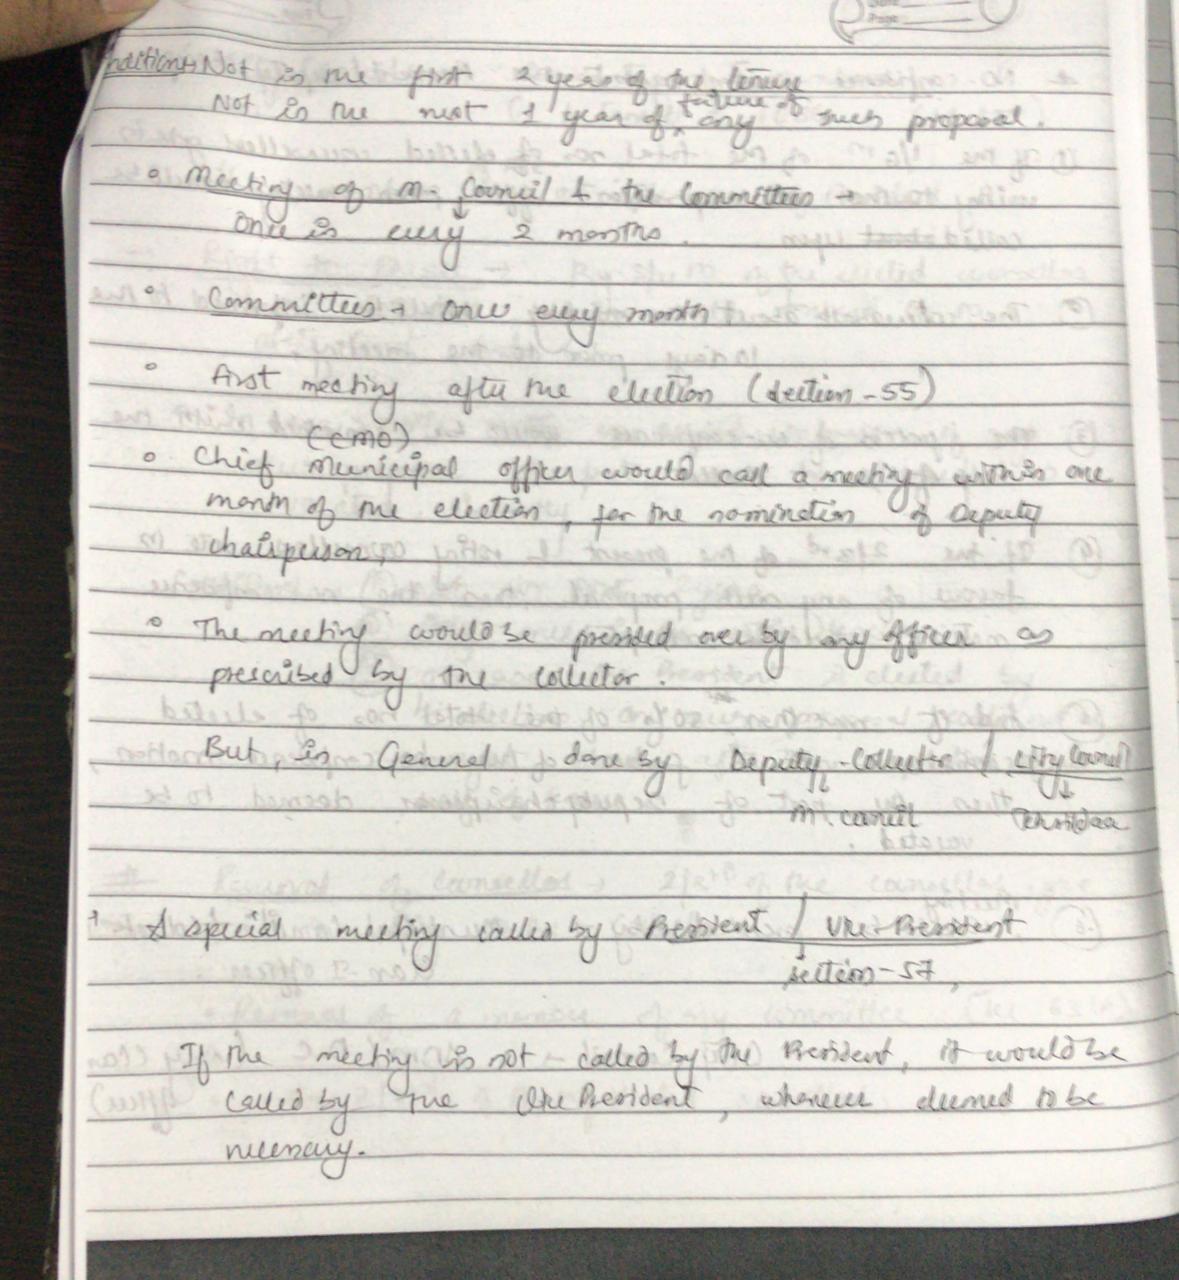 Page
nditions → Not in the first 2 year of the tenure
failure of
Not in the next 1 year of any such proposal.
• Meeting of M. Council & the Committees →
Once in every 2 months.
• Committees → Once every month
• First meeting after the election (Section-55)
(CMO)
• Chief Municipal officer would call a meeting within one
month of the election, for the nomination of Deputy
chairperson,
• The meeting would be presided over by any officer as
prescribed by the collector.
But, in General done by Deputy-Collector / City Council
M. council Tehsildar
A special meeting called by President / Vice-President
Section-57,
If the meeting is not called by the President, it would be
called by the Vice President, whenever deemed to be
necessary.